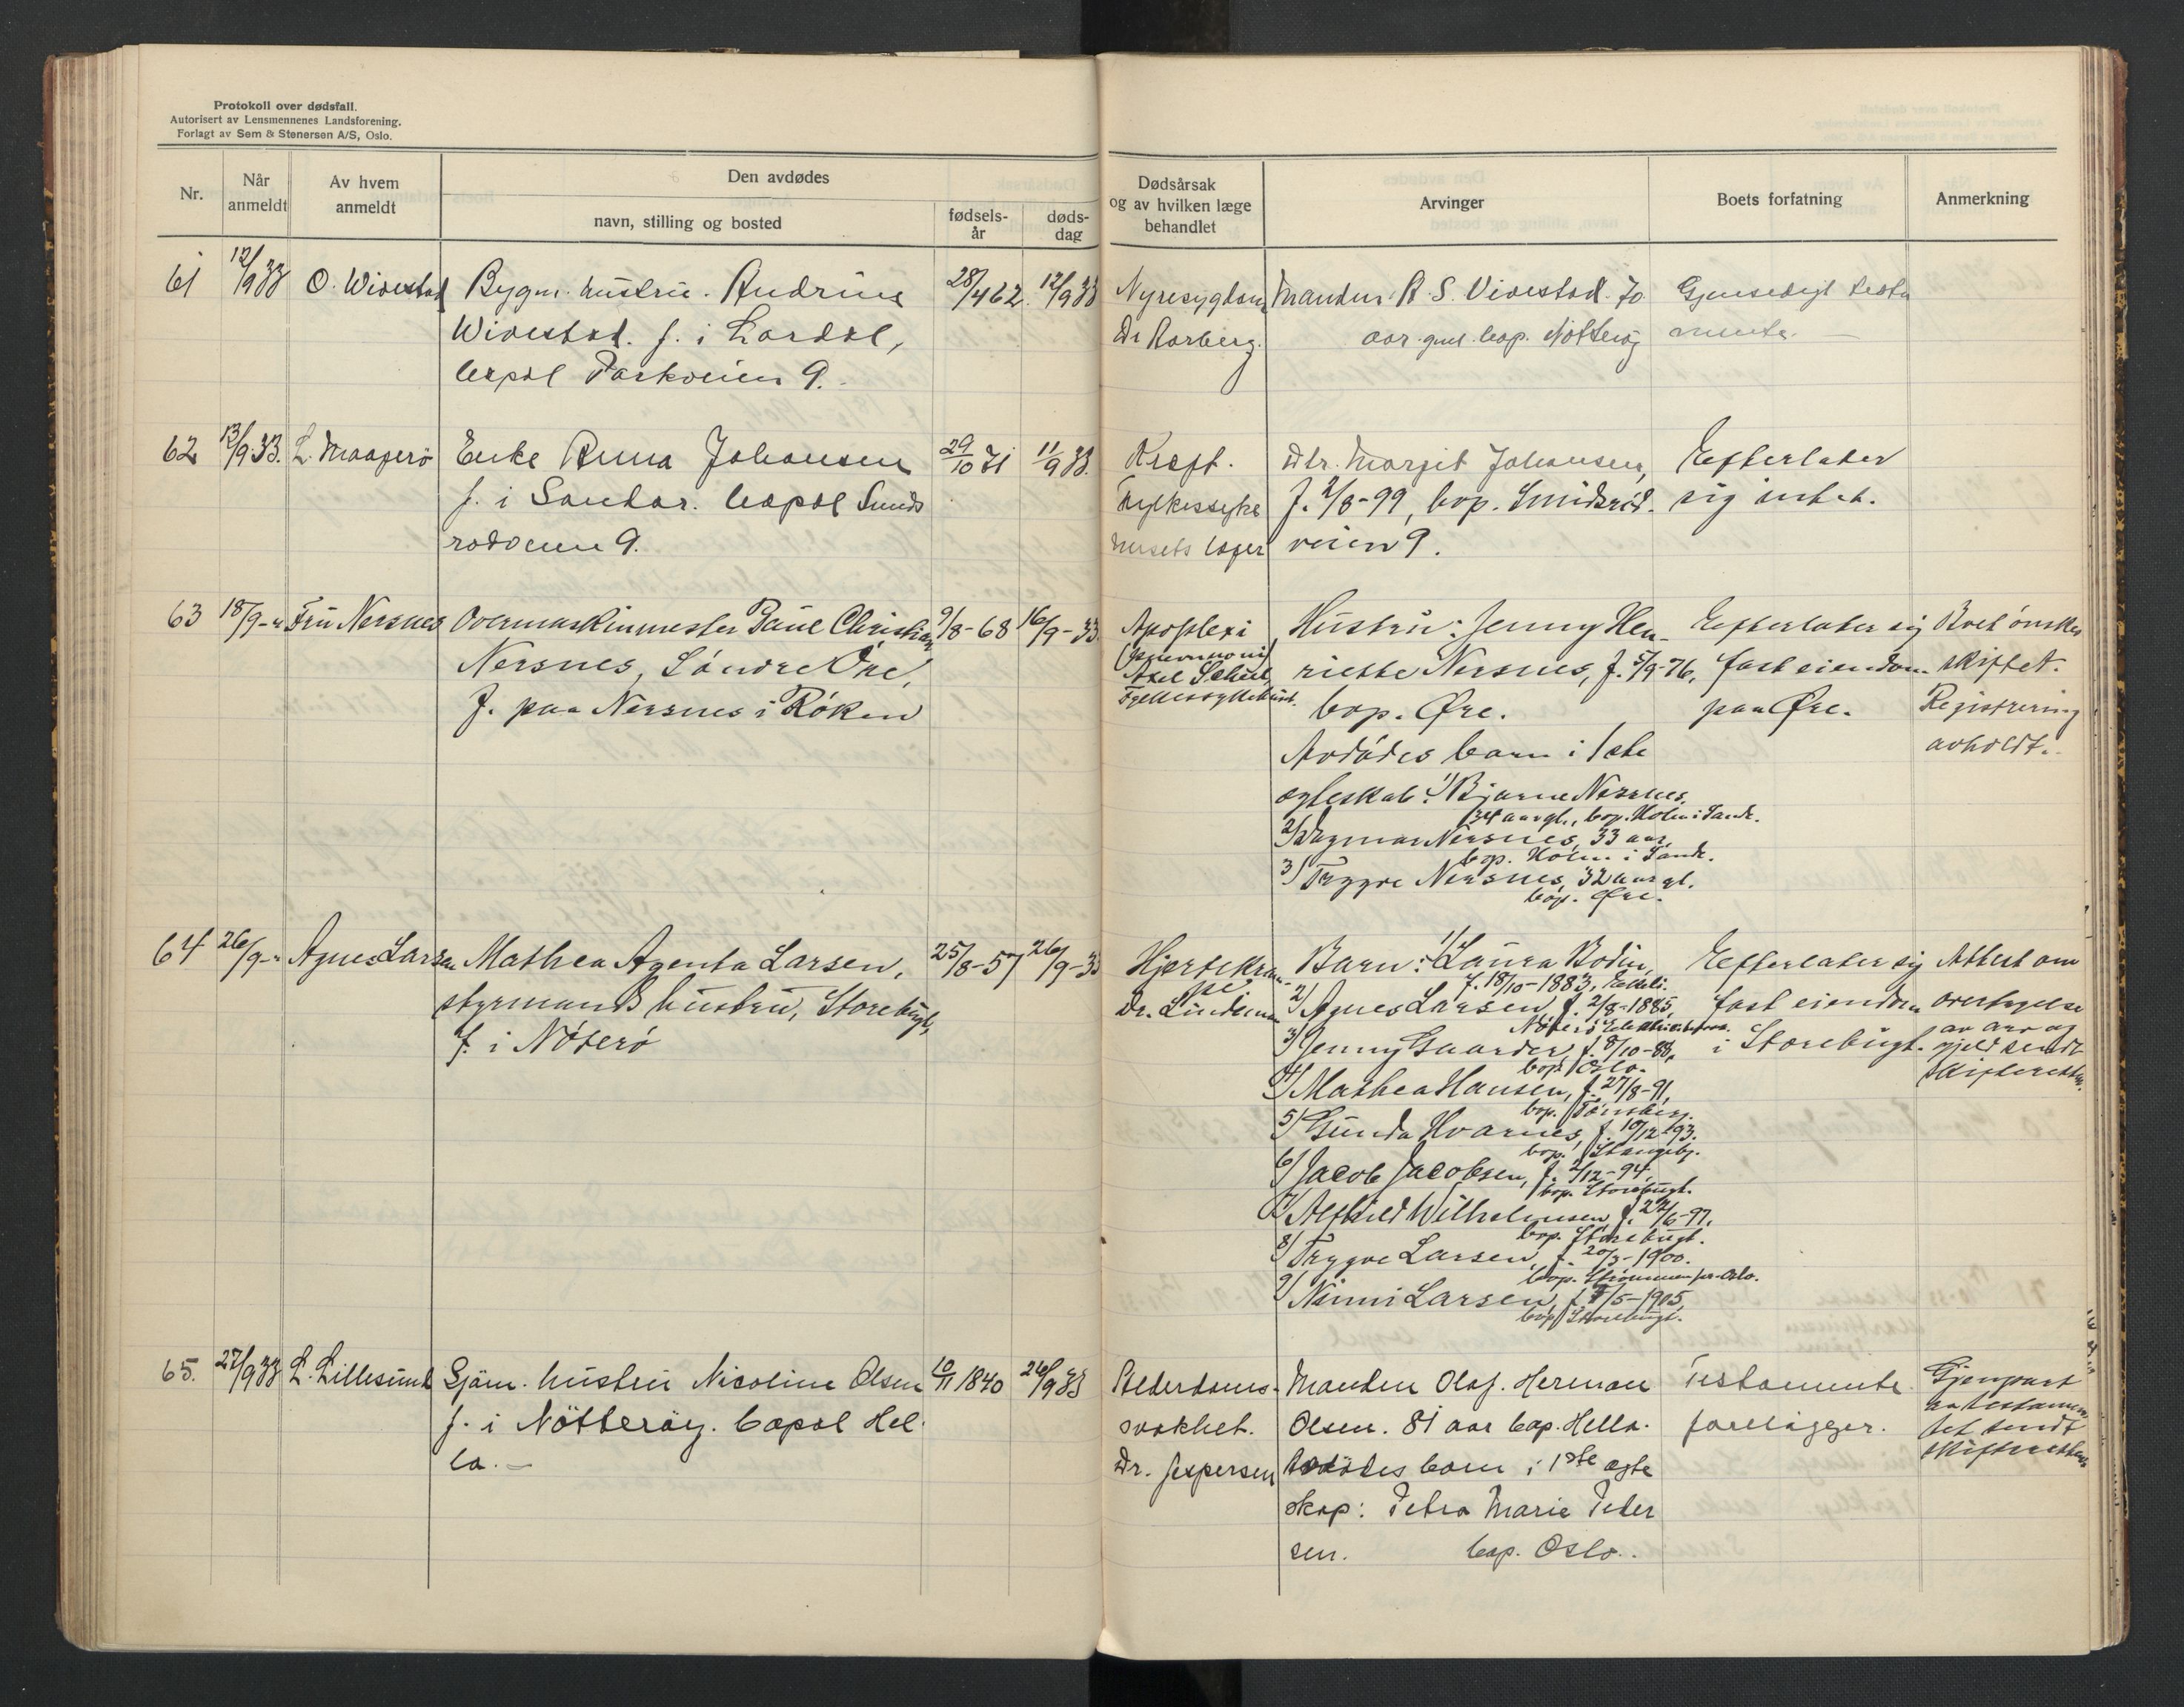 Protokoll over dødsfall.
Autorisert av Lensmennenes Landsforening.
Forlagt av Sem & Stenersen A/S, Oslo.
Nr.
Når
anmeldt
Av hvem
anmeldt
Den avdødes
navn, stilling og bosted
fødsels-
år
døds-
dag
Dødsårsak
og av hvilken læge
behandlet
Arvinger
Boets forfatning
Anmerkning
61
12/9 33
O. Wivestad
Bygm. hustru. Andrine
Wivestad. f. i Lardal,
bopæl Parkveien 9.
28/4 62.
12/9 33
Nyresygdom
Dr
Manden S. Vivestad. 70
aar gml. bop. Nötteröy
Gjensedigt testa
mente.
62
13/9.33.
L. Maagerö
Enke Anna Johansen
f. i Sandar. bopæl Smids
rødveien 9.
29/10 71
11/9 33.
Kreft.
Fylkessyke
husets læger
Dtr. Margit Johansen,
f. 2/8-99, bop. Smidsrød-
veien 9.
Efterlater
sig intet.
63
18/9-"
Fru Nersnes
Overmaskinmester Paul Christian
Nersnes, Söndre Öre,
f. paa Nersnes i Røken
9/8-68
16/9-33
Apoplexi
(pneumoni)
Axel
Fylkessykehuset.
Hustru: Jenny Hen-
riette Nersnes, f. 5/9-76,
bop. Øre.
Avdødes barn i 1ste
egteskab: 1/ Bjarne Nersnes,
34 aar gl., bop. Holm i Sande.
2/ Dagmar Nersnes, 33 aar,
bop. Holm i Sande.
3/ Trygve Nersnes, 32 aar gl.
bop. Øre.
Efterlater sig
fast eiendom
paa Øre.
Boet ønskes
skiftet.
Registrering
avholdt.
64
26/9-"
Agnes Larsen
Mathea Agenta Larsen,
styrmands hustru, Storebugt,
f. i Nöterö
25/8-57
26/9-33
Hjertekram-
pe
Dr. Lindeman
Barn: 1/ Laura Bodin,
f. 18/10-1883,
2/ Agnes Larsen, f. 2/8-1885,
3/ Jenny Gaarder, f. 8/10-88,
bop. Oslo.
4/ Mathea Hansen, f. 27/8-91,
bop. Tönsberg.
5/ Gunda Hvarnes, f. 10/12-93.
bop.
6/ Jacob Jacobsen, f. 2/12-94,
bop. Storebugt.
7/ Alfhild Wilhelmsen, f. 22/6-97.
bop. Storebugt.
8/ Trygve Larsen, f. 20/3-1900.
bop. Strömmen pr. Oslo.
9/ Ninni Larsen, f. 7/5-1905,
bop. Storebugt.
Efterlater sig
fast eiendom
i Storebugt.
Attest om
overtagelse
av arv og
gjeld sendt
skifteretten.
65.
27/9 33
L. Lillesund
Sjöm. hustru Nicoline Olsen
f. i Nötteröy. bopæl Hel-
la.
10/11 1840
26/9 33
Alderdoms-
svakhet.
Dr. Jespersen
Manden Olaf. Herman
Olsen. 81 aar bop. Hella.
Avdödes barn i 1ste egte
skap: Petra Marie Peder
sen. bop. Oslo.
Testamente
foreligger.
Gjenpart
av testamen
tet sendt
skifteretten